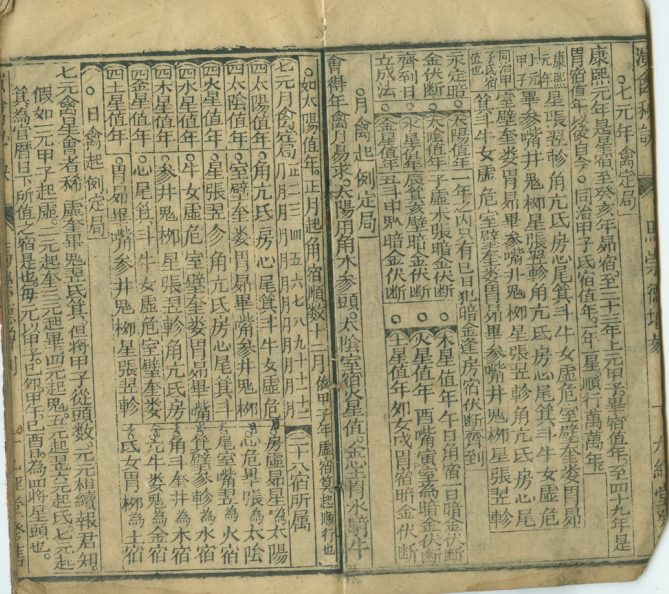 七元年禽定局
康熙元年是星宿至癸亥年昴宿至二十三年上元甲子畢宿值年至四十九年是
胃宿值年以後自今同治甲子氐宿值年一年一星順行萬萬年
星張翌軫角亢氐房心尾箕斗牛女虛危室壁奎娄胃昴
畢參嘴井鬼栁星張翌軫角亢氐房心尾箕斗牛女虛危
室壁奎娄胃昴畢參嘴井鬼栁星張翌軫角亢氐房心尾
箕斗牛女虛危室壁奎娄胃昴畢參嘴井鬼栁星張翌軫
永定暗金伏断齊到日立成法
太陽值年一年之内只有巳日犯暗金逢房宿伏断齊到
太陰值年子虛未張暗金伏断
水星值年辰箕亥壁暗金伏断
木星值年午日角宿一日暗金伏断
火星值年酉嘴寅室為暗金伏断
土星值年夘女戌胃宿暗金伏断
月禽起例定局
會得年禽月易求太陽用角木參頭太陰室宿火星值金心土胃水騎牛
如太陽值年正月起角宿順数十二月
七元月禽定局 正二三四五六七八九十十一十二
四太陽值年 角亢氐房心尾箕斗牛女虛危
四太陰值年 室壁奎娄胃昴畢嘴參井鬼栁
四火星值年 星張翌軫角亢氐房心尾箕斗
四水星值年 牛女虛危室壁奎娄胃昴畢嘴
四木星值年 參井鬼栁星張翌軫角亢氐房
四金星值年 心尾箕斗牛女虛危室壁奎娄
四土星值年 胃昴畢嘴參井鬼栁星張翌軫
二十八宿所属
房虛昴星為太陽
心危畢張為太陰
尾室嘴翌為火宿
箕壁參軫為水宿
角斗奎井為木宿
亢牛娄鬼為金宿
氐女胃栁為土宿
日禽起例定局
七元禽星會者稀虛奎畢鬼翌氐箕但將甲子從頭数元元相續報君知
假如一元甲子起虛二元起奎三元起畢四元起鬼五元起翌六元起氐七元起
箕為官曆日下所值之宿是也每元以甲子己夘甲午己酉此為四將星頭也